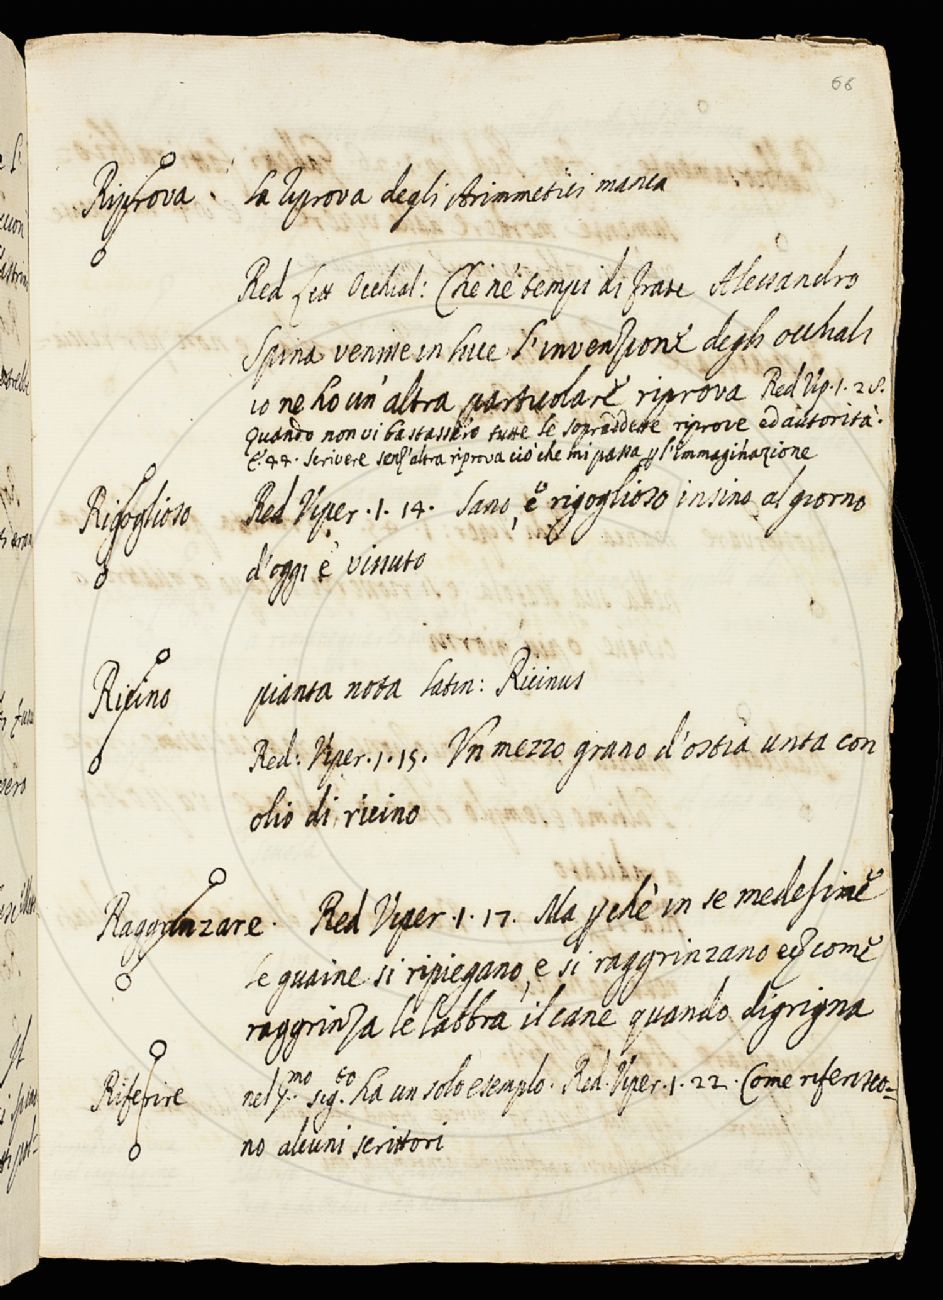 66
Riprova la riprova degli Arimmetici manca
Red lett Occhial: Che ne' tempi di frate Alessandro
Spina venisse in luce l'invenzione degli occhiali
io ne ho un' altra particolare riprova Red Vip. 1. 28.
Quando non vi bastassero tutte le sopraddette riprove ed autorità.
E. 44. scrivere senz'altra riprova ciò che mi passa p l'Immaginazione
Rigoglioso Red Viper. 1. 14. Sano, e rigoglioso insino al giorno
d'oggi è vissuto
Ricino pianta nota latin: Ricinus
Red: Viper. 1. 15. Un mezzo grano d'ostia unta con
olio di ricino
Raggrinzare. Red Viper. 1. 17. Ma p chè in se medesime
le guaine si ripiegano, e si raggrinzano come
raggrinza le labbra il cane quando digrigna
Riferire nel pmo sigto. ha un solo esemplo. Red. Viper. 1. 22. Come riferisco=
no alcuni scrittori